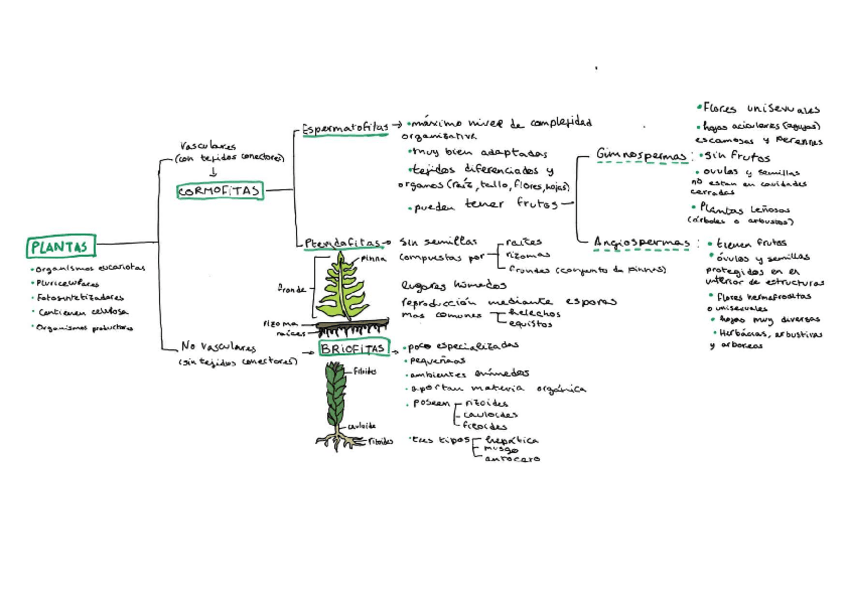 PLANTAS
• Organismos eucariotas
• Pluricelulares
• Fotosintetizadores
• Contienen celulosa
• Organismos productores
Vasculares
(con tejidos conectores)
↓
CORMOFITAS
No vasculares →
(sin tejidos conectores)
Espermatofitas → • máximo nivel de complejidad
organizativa
• muy bien adaptadas
• tejidos diferenciados y
organos (raíz, tallo, flores, hojas)
• pueden tener frutos
Gimnospermas:
• Flores unisexuales
• hojas aciculares (agujas)
escamosas y perennes
• sin frutos
• ovulos y semillas
no estan en cavidades
cerradas
• Plantas leñosas
(árboles o arbustos)
Angiospermas :
• tienen frutos
• óvulos y semillas
protegidos en el
interior de estructuras
• Flores hermafroditas
o unisexuales
• hojas muy diversas
• Herbáceas, arbustivas
y arboreas
Pteridofitas → sin semillas
compuestas por
raíces
rizomas
frondes (conjunto de pinnas)
lugares húmedos
reproducción mediante esporas
mas comunes
helechos
equistos
pinna
fronde
rizoma
raíces
BRIOFITAS → • poco especializadas
• pequeñas
• ambientes húmedos
• aportan materia orgánica
• poseen
rizoides
cauloides
filoides
• tres tipos
hepática
musgo
antocero
filoides
cauloide
rizoides